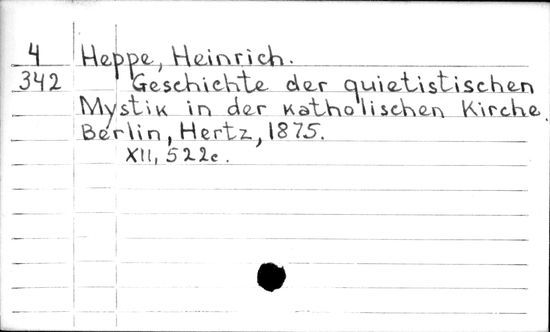 4 Heppe, Heinrich.
342 Geschichte der quietistischen
Mystik in der katholischen Kirche.
Berlin, Hertz, 1875.
XII, 522c.